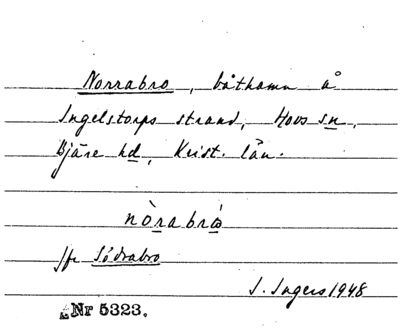 Norrabro, båthamn å
Ingelstorps strand, Hovs sn,
Bjäre hd, Krist. län.
nòrabrò
Jfr Södrabro
I. Ingers 1948
Nr 5323.